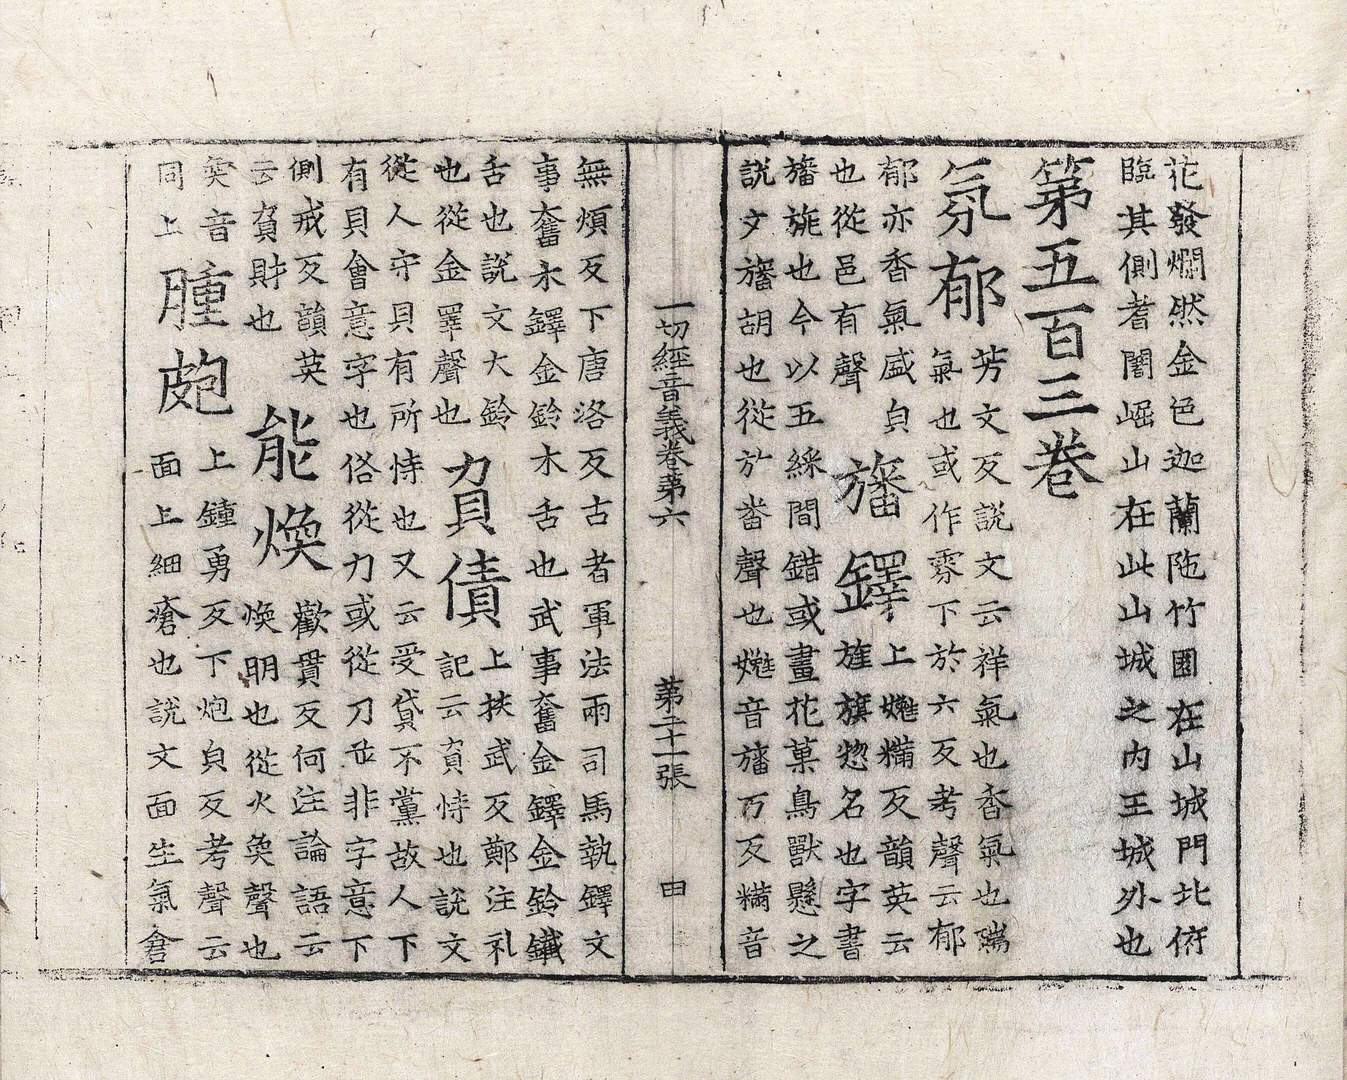 花發爛然金色迦蘭陁竹園在山城門北俯
臨其側耆闍崛山在此山城之內王城外也
第五百三卷
氛郁 芳文反說文云祥氣也杳氣也瑞
氣也或作雰下於六反考聲云郁
郁亦香氣盛皃
也從邑有聲
旛鐸 上孏襔反韻英云
旌旗惣名也字書
旛旎也今以五綵間錯或畫花菓鳥獸懸之
說文旛胡也從㫃番聲也孏音旛万反襔音
一切經音義卷第六 第二十一張 由
無煩反下唐洛反古者軍法兩司馬執鐸文
事奮木鐸金鈴木舌也武事奮金鐸金鈴鐵
舌也說文大鈴
也從金睪聲也
負債 上扶武反鄭注礼
記云負恃也說文
從人守貝有所恃也又云受貸不黨故人下
有貝會意字也俗從力或從刀並非字意下
側戒反韻英
云負財也
能煥 歡貫反何注論語云
煥明也從火奐聲也
奐音
同上
腫皰 上鍾勇反下炮皃反考聲云
面上細瘡也說文面生氣倉